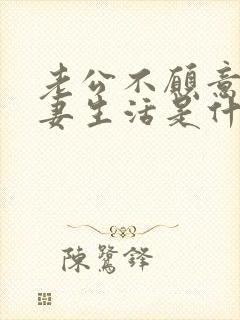 老公不愿意
妻生活是什
陳鷺鋒